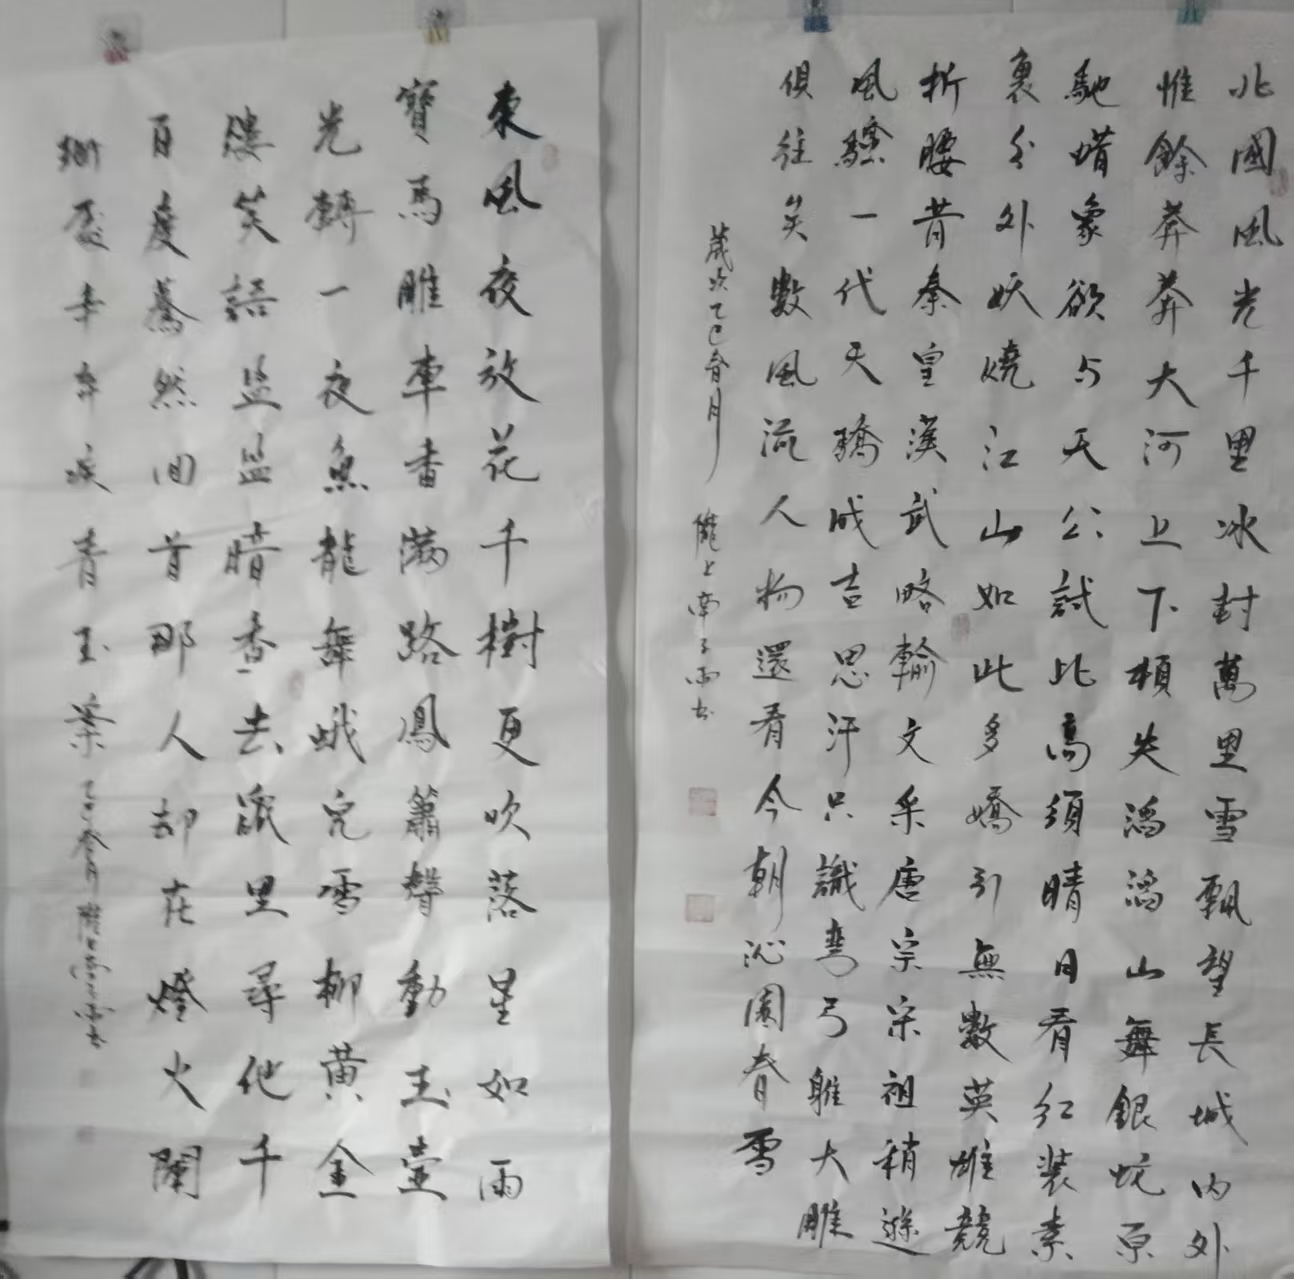 北國風光千里冰封萬里雪飄望長城内外
惟餘莽莽大河上下頓失滔滔山舞銀蛇原
馳蜡象欲与天公試比高須晴日看紅装素
裹分外妖燒江山如此多嬌引無數英雄競
折腰昔秦皇漢武略輸文采唐宗宋祖稍遜
風騷一代天驕成吉思汗只識彎弓射大雕
俱往矣數風流人物還看今朝沁園春雪
歲次乙巳春月 隴上南子雨书
東風夜放花千樹更吹落星如雨
寶馬雕車香滿路鳳簫聲動玉壺
光轉一夜魚龍舞蛾兒雪柳黄金
縷笑語盈盈暗香去眾里尋他千
百度驀然回首那人却在燈火闌
珊處辛弃疾青玉案 乙巳春月 隴上南子雨书